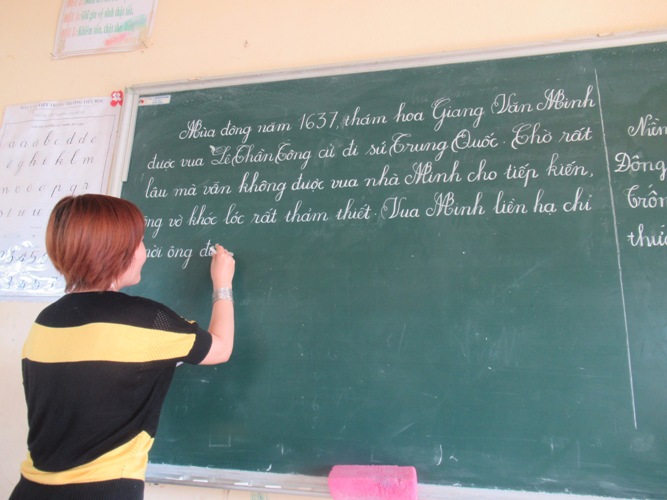 Mùa đông năm 1637, thám hoa Giang Văn Minh
được vua Lê Thần Tông cử đi sứ Trung Quốc. Chờ rất
lâu mà vẫn không được vua nhà Minh cho tiếp kiến,
ông vờ khóc lóc rất thảm thiết. Vua Minh liền hạ chỉ
mời ông đế
Đông
a a a b c d d e
e g h i k l m
n o o o p q r